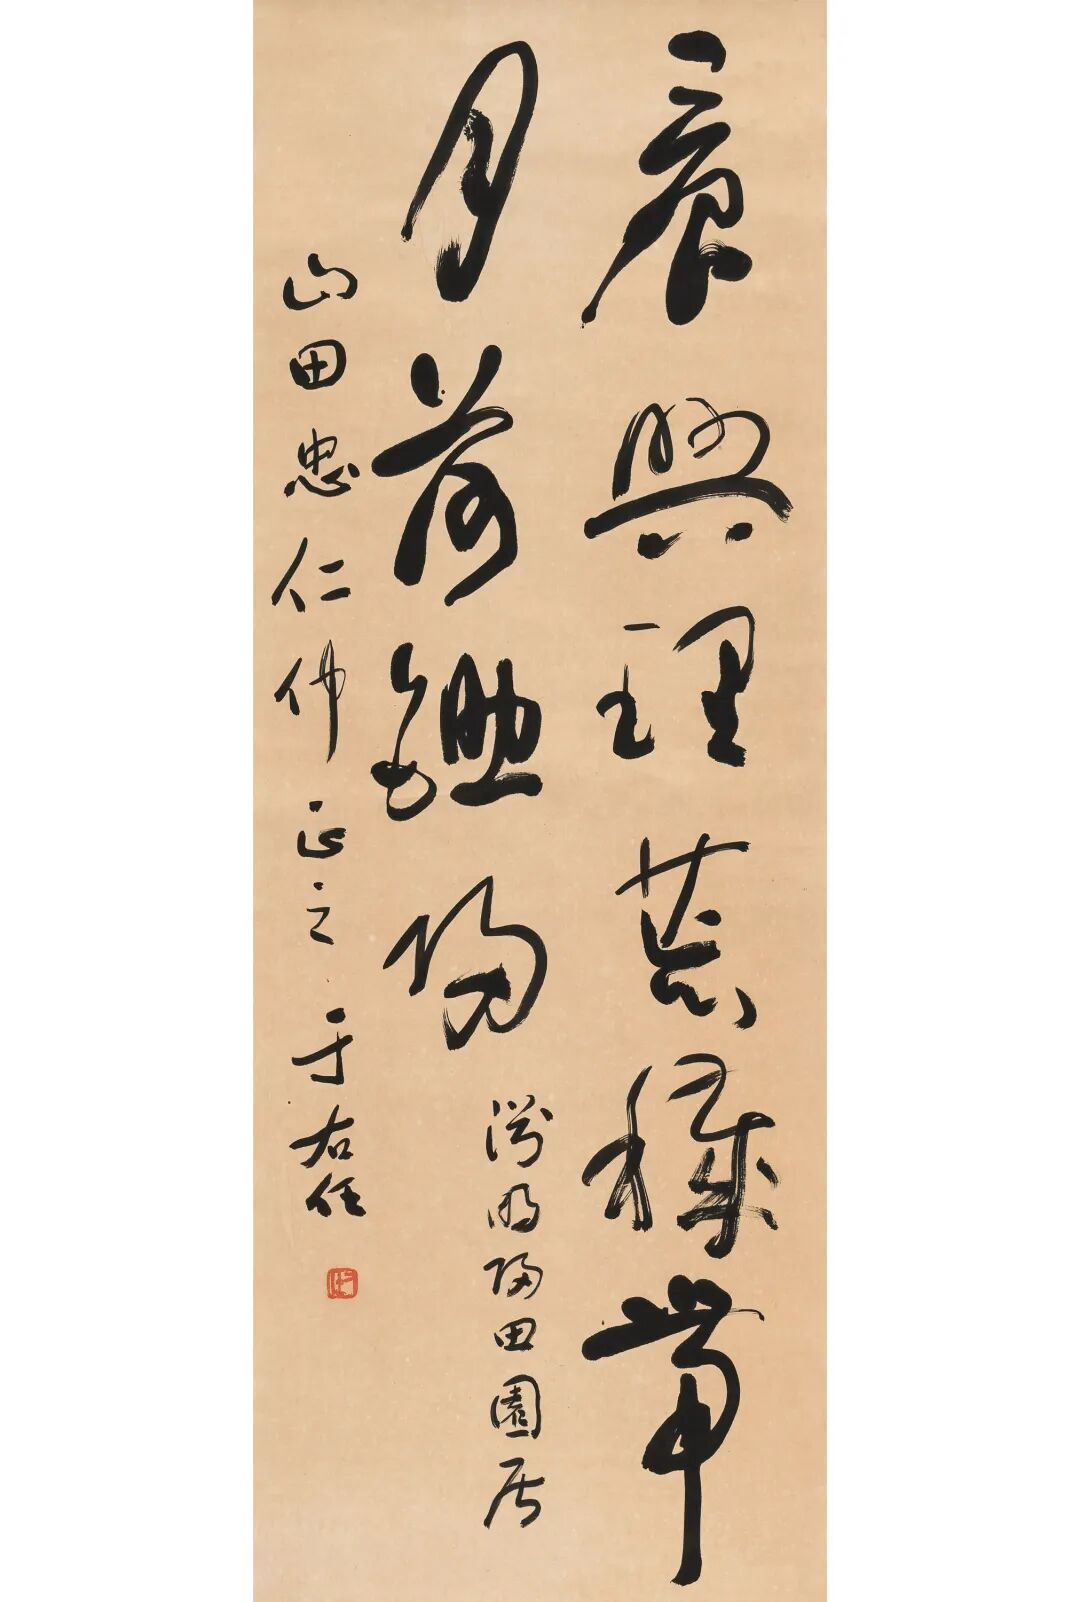 晨興理荒穢帶
月荷鋤歸
淵明歸田園居
山田忠仁仲正之 于右任